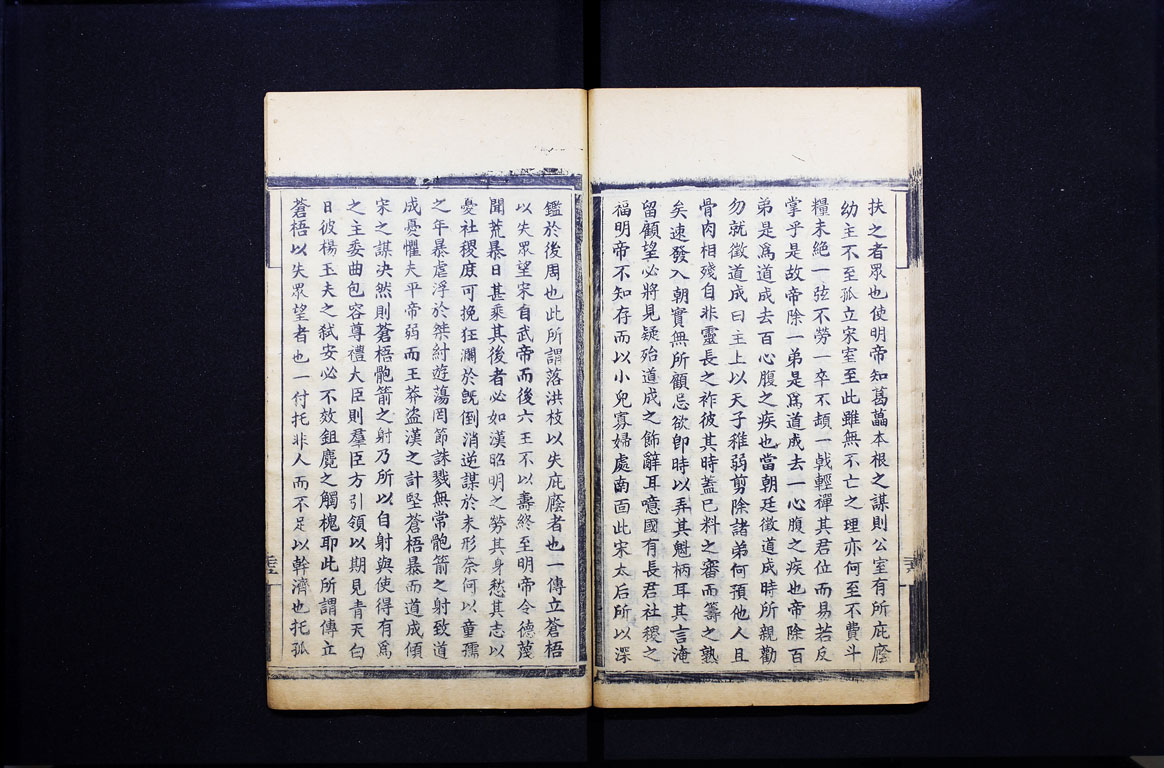 扶之者眾也使明帝知葛藟本根之謀則公室有所庇廕
幼主不至孤立宋室至此雖無不亡之理亦何至不費斗
糧未絕一弦不勞一卒不頓一戟輕禪其君位而易若反
掌乎是故帝除一弟是爲道成去一心腹之疾也帝除百
弟是爲道成去百心腹之疾也當朝廷徵道成時所親勸
勿就徵道成曰主上以天子稚弱剪除諸弟何預他人且
骨肉相殘自非靈長之祚彼其時蓋已料之審而籌之熟
矣速發入朝實無所顧忌欲卽時以弄其魁柄耳其言淹
留顧望必將見疑殆道成之飾辭耳噫國有長君社稷之
福明帝不知存而以小兒寡婦處南面此宋太后所以深
鑑於後周也此所謂落洪枝以失庇廕者也一傳立蒼梧
以失眾望宋自武帝而後六王不以壽終至明帝令德蔑
聞荒暴日甚乘其後者必如漢昭明之勞其身愁其志以
憂社稷庶可挽狂瀾於旣倒消逆謀於未形奈何以童孺
之年暴虐浮於桀紂遊蕩罔節誅戮無常骲箭之射致道
成憂懼夫平帝弱而王莽盜漢之計堅蒼梧暴而道成傾
宋之謀决然則蒼梧骲箭之射乃所以自射與使得有爲
之主委曲包容尊禮大臣則羣臣方引領以期見青天白
日彼楊玉夫之弒安必不效鉏麑之觸槐耶此所謂傳立
蒼梧以失眾望者也一付托非人而不足以幹濟也托孤